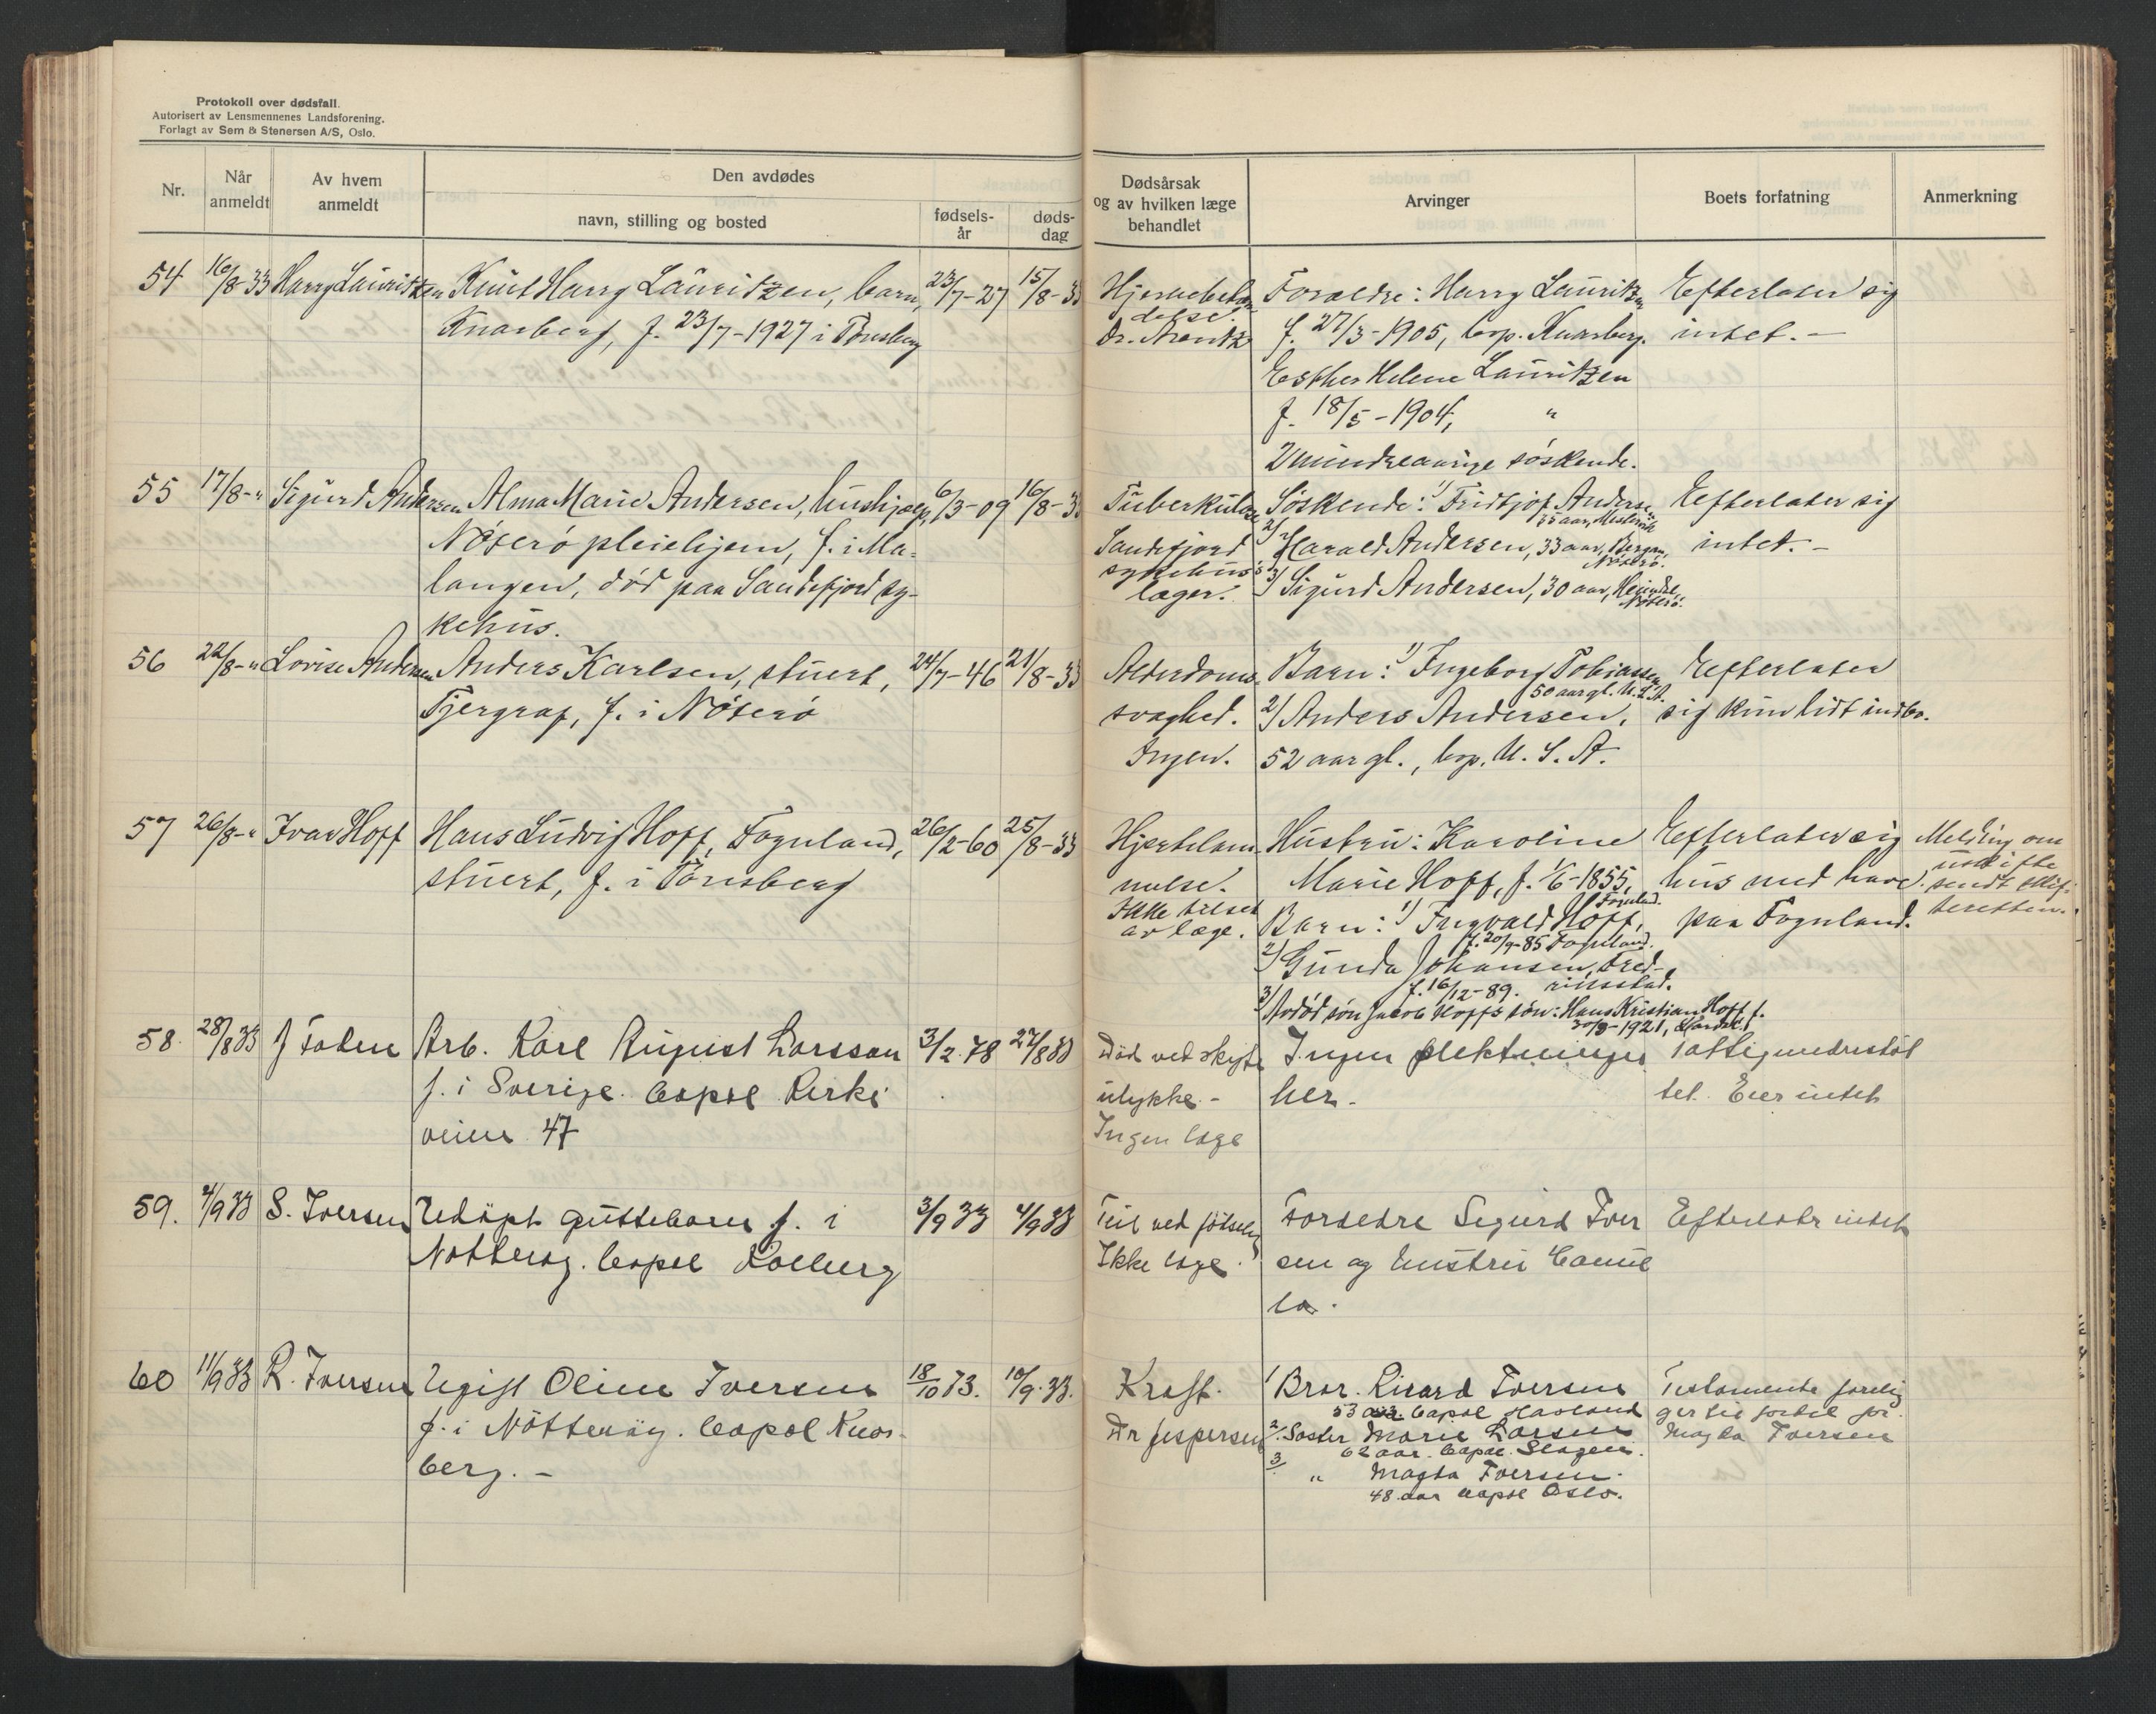 Protokoll over dødsfall.
Autorisert av Lensmennenes Landsforening.
Forlagt av Sem & Stenersen A/S, Oslo.
Nr.
Når anmeldt
Av hvem anmeldt
Den avdødes
navn, stilling og bosted
fødsels-
år
døds-
dag
Dødsårsak
og av hvilken læge
behandlet
Arvinger
Boets forfatning
Anmerkning
54 16/8-33 Harry Lauritzen Knut Harry Lauritzen, barn, 23/7-27 15/8-33
Knarberg, f. 23/7-1927 i Tønsberg
Dr. Arentz
Foraeldre: Harry Lauritzen
f. 27/3-1905, bop. Knarberg.
Esther Helene Lauritzen
f. 18/5-1904, "
2 mindreaarige søskende.
Efterlater sig
intet. -
55 17/8-" Sigurd Andersen Alma Marie Andersen, hushjælp, 6/3-09 16/8-33
Nøterø pleiehjem, f. i Ma-
langen, død paa Sandefjord sy-
kehus.
Tuberkulose
Sandefjord
sykehus's
læger.
Søskende: 1) Fridtjof Andersen
35 aar,
2) Harald Andersen, 33 aar, Bergan,
Nøterø.
3) Sigurd Andersen, 30 aar,
Nøterø.
Efterlater sig
intet. -
56 22/8-" Lovise Andersen Anders Karlsen, stuert, 24/7-46 21/8-33
Tjergraf, f. i Nøterø
Alderdoms-
svaghed.
Ingen.
Barn: 1) Ingeborg Tobiassen
50 aar gl. U.S.A.
2) Anders Andersen,
52 aar gl., bop. U. S. A.
Efterlater
sig kun lidt indbo.
57 26/8-" Ivar Hoff Hans Ludvig Hoff, Føynland, 26/2-60 25/8-33
stuert, f. i Tønsberg
Hjertelam-
melse.
Ikke tilset
av læge.
Hustru: Karoline
Marie Hoff, f. 1/6-1855,
Føynland.
Barn: 1) Ingvald Hoff,
f. 20/9-85 Føynland.
2) Gunda Johansen, Fred-
f. 16/12-89. riksstad.
3) Avdød søn Jacob Hoffs søn: Hans Kristian Hoff f.
30/8-1921,
Efterlater sig
hus med have
paa Føynland.
Melding om
uskifte
sendt skif-
teretten.
58. 28/8 33 Arb. Karl August Larsson 3/2.78 27/8 33
f. i Sverige. bopæl Kirke
veien 47
Død ved
ulykke -
Ingen læge
Ingen slektninger
her.
Fattigunderstøt
tet. Eier intet
59. 4/9 33 S. Iversen Udøpt guttebarn f. i 3/9 33 4/9 33
Nøtterøy. bopæl Kolberg
ved fødselen
Ikke læge.
Foreldre Sigurd Iver
sen og hustru Camil
la.
Efterlatr intet
60 11/9 33 R. Iversen Ugift Oline Iversen 18/10 73. 10/9.33.
f. i Nøtterøy. bopæl Knar-
berg. -
Kræft.
Dr Jespersen
1 Bror. Rikard Iversen
53 aar bopæl Havland
2. Søster Marie Larsen
62 aar. bopæl. Slagen.
3. " Magda Iversen.
48 aar bopæl Oslo.
Testamente forelig
ger til fordel for
Magda Iversen